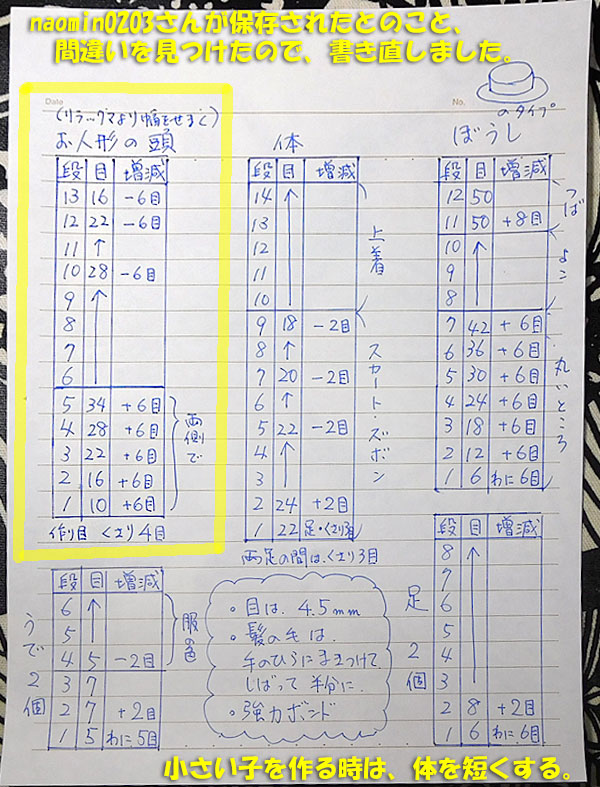 naomin0203さんが保存されたとのこと、
間違いを見つけたので、書き直しました。
Date
No.
のタイプ
(リラックマより幅をせまく)
お人形の頭
段 目 増減
13 16 -6目
12 22 -6目
11 ↑
10 28 -6目
9 ↑
8
7
6
5 34 +6目
4 28 +6目
3 22 +6目
2 16 +6目
1 10 +6目
両側で
作り目 くさり4目
体
段 目 増減
14 ↑
13
12
11
10
9 18 -2目
8 ↑
7 20 -2目
6 ↑
5 22 -2目
4 ↑
3
2 24 +2目
1 22 足・くさり3目
上着
スカート・ズボン
両足の間は、くさり3目
ぼうし
段 目 増減
12 50
11 50 +8目
10 ↑
9
8
7 42 +6目
6 36 +6目
5 30 +6目
4 24 +6目
3 18 +6目
2 12 +6目
1 6 わに6目
つば
よこ
丸いところ
うで2個
段 目 増減
6 ↑
5
4 5 -2目
3 7
2 7 +2目
1 5 わに5目
服の色
・目は、4.5mm
・髪の毛は
手のひらにまきつけて
しばって半分に
・強力ボンド
足2個
段 目 増減
8 ↑
7
6
5
4
3
2 8 +2目
1 6 わに6目
小さい子を作る時は、体を短くする。